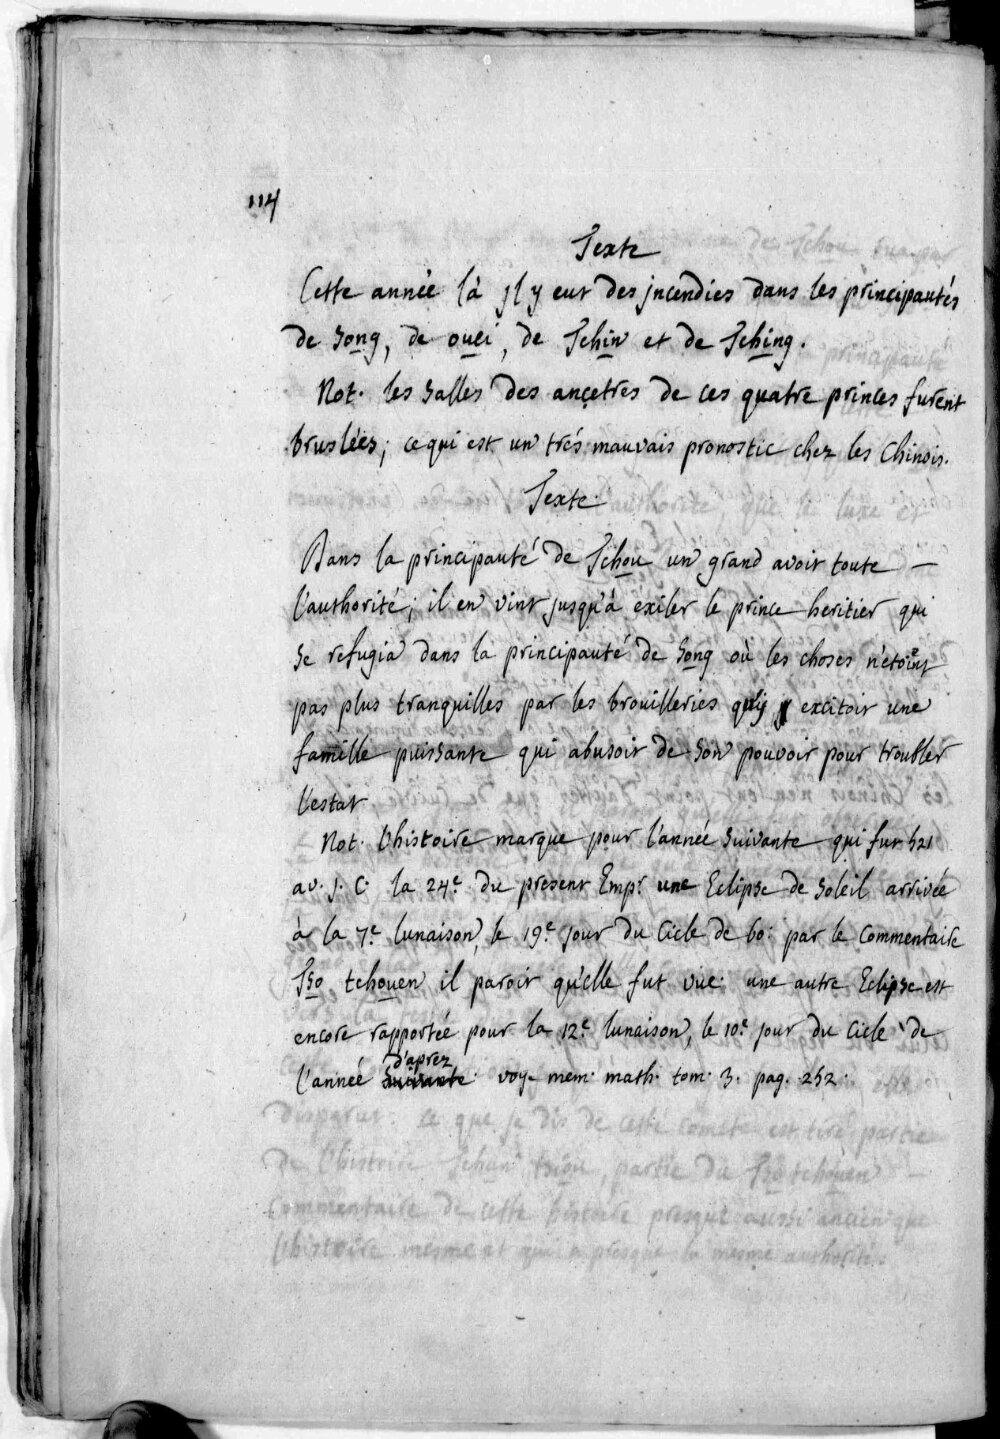 114
Texte
Cette année là jl y eut des jncendies dans les principautés
de Song, de ouei, de Tchin et de Tching.
Not. les salles des ancetres de ces quatre princes furent
bruslées; ce qui est un trés mauvais pronostic chez les Chinois.
Texte.
Dans la principauté de Tchou un grand avoit toute
l'authorité; il en vint jusqu'à exiler le prince heritier qui
se refugia dans la principauté de Song où les choses n'etoient
pas plus tranquilles par les brouilleries qu'y excitoit une
famille puissante qui abusoit de son pouvoir pour troubler
l'estat.
Not. l'histoire marque pour l'année suivante qui fut 521
av. j. C. la 24e. du present Empr. une Eclipse de soleil arrivée
à la 7e. lunaison, le 19e. jour du Cicle de 60: par le commentaire
Tso tchouen il paroit qu'elle fut vüe. une autre Eclipse est
encore rapportée pour la 12e. lunaison, le 10e. jour du Cicle de
l'année suivante d'aprez. voy. mem. math. tom. 3. pag. 252.